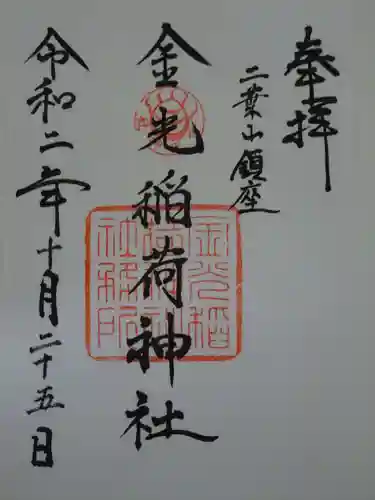 奉拝
二葉山鎮座
金光稲荷神社
令和二年十月二十五日
金光稲
荷神社
社務所